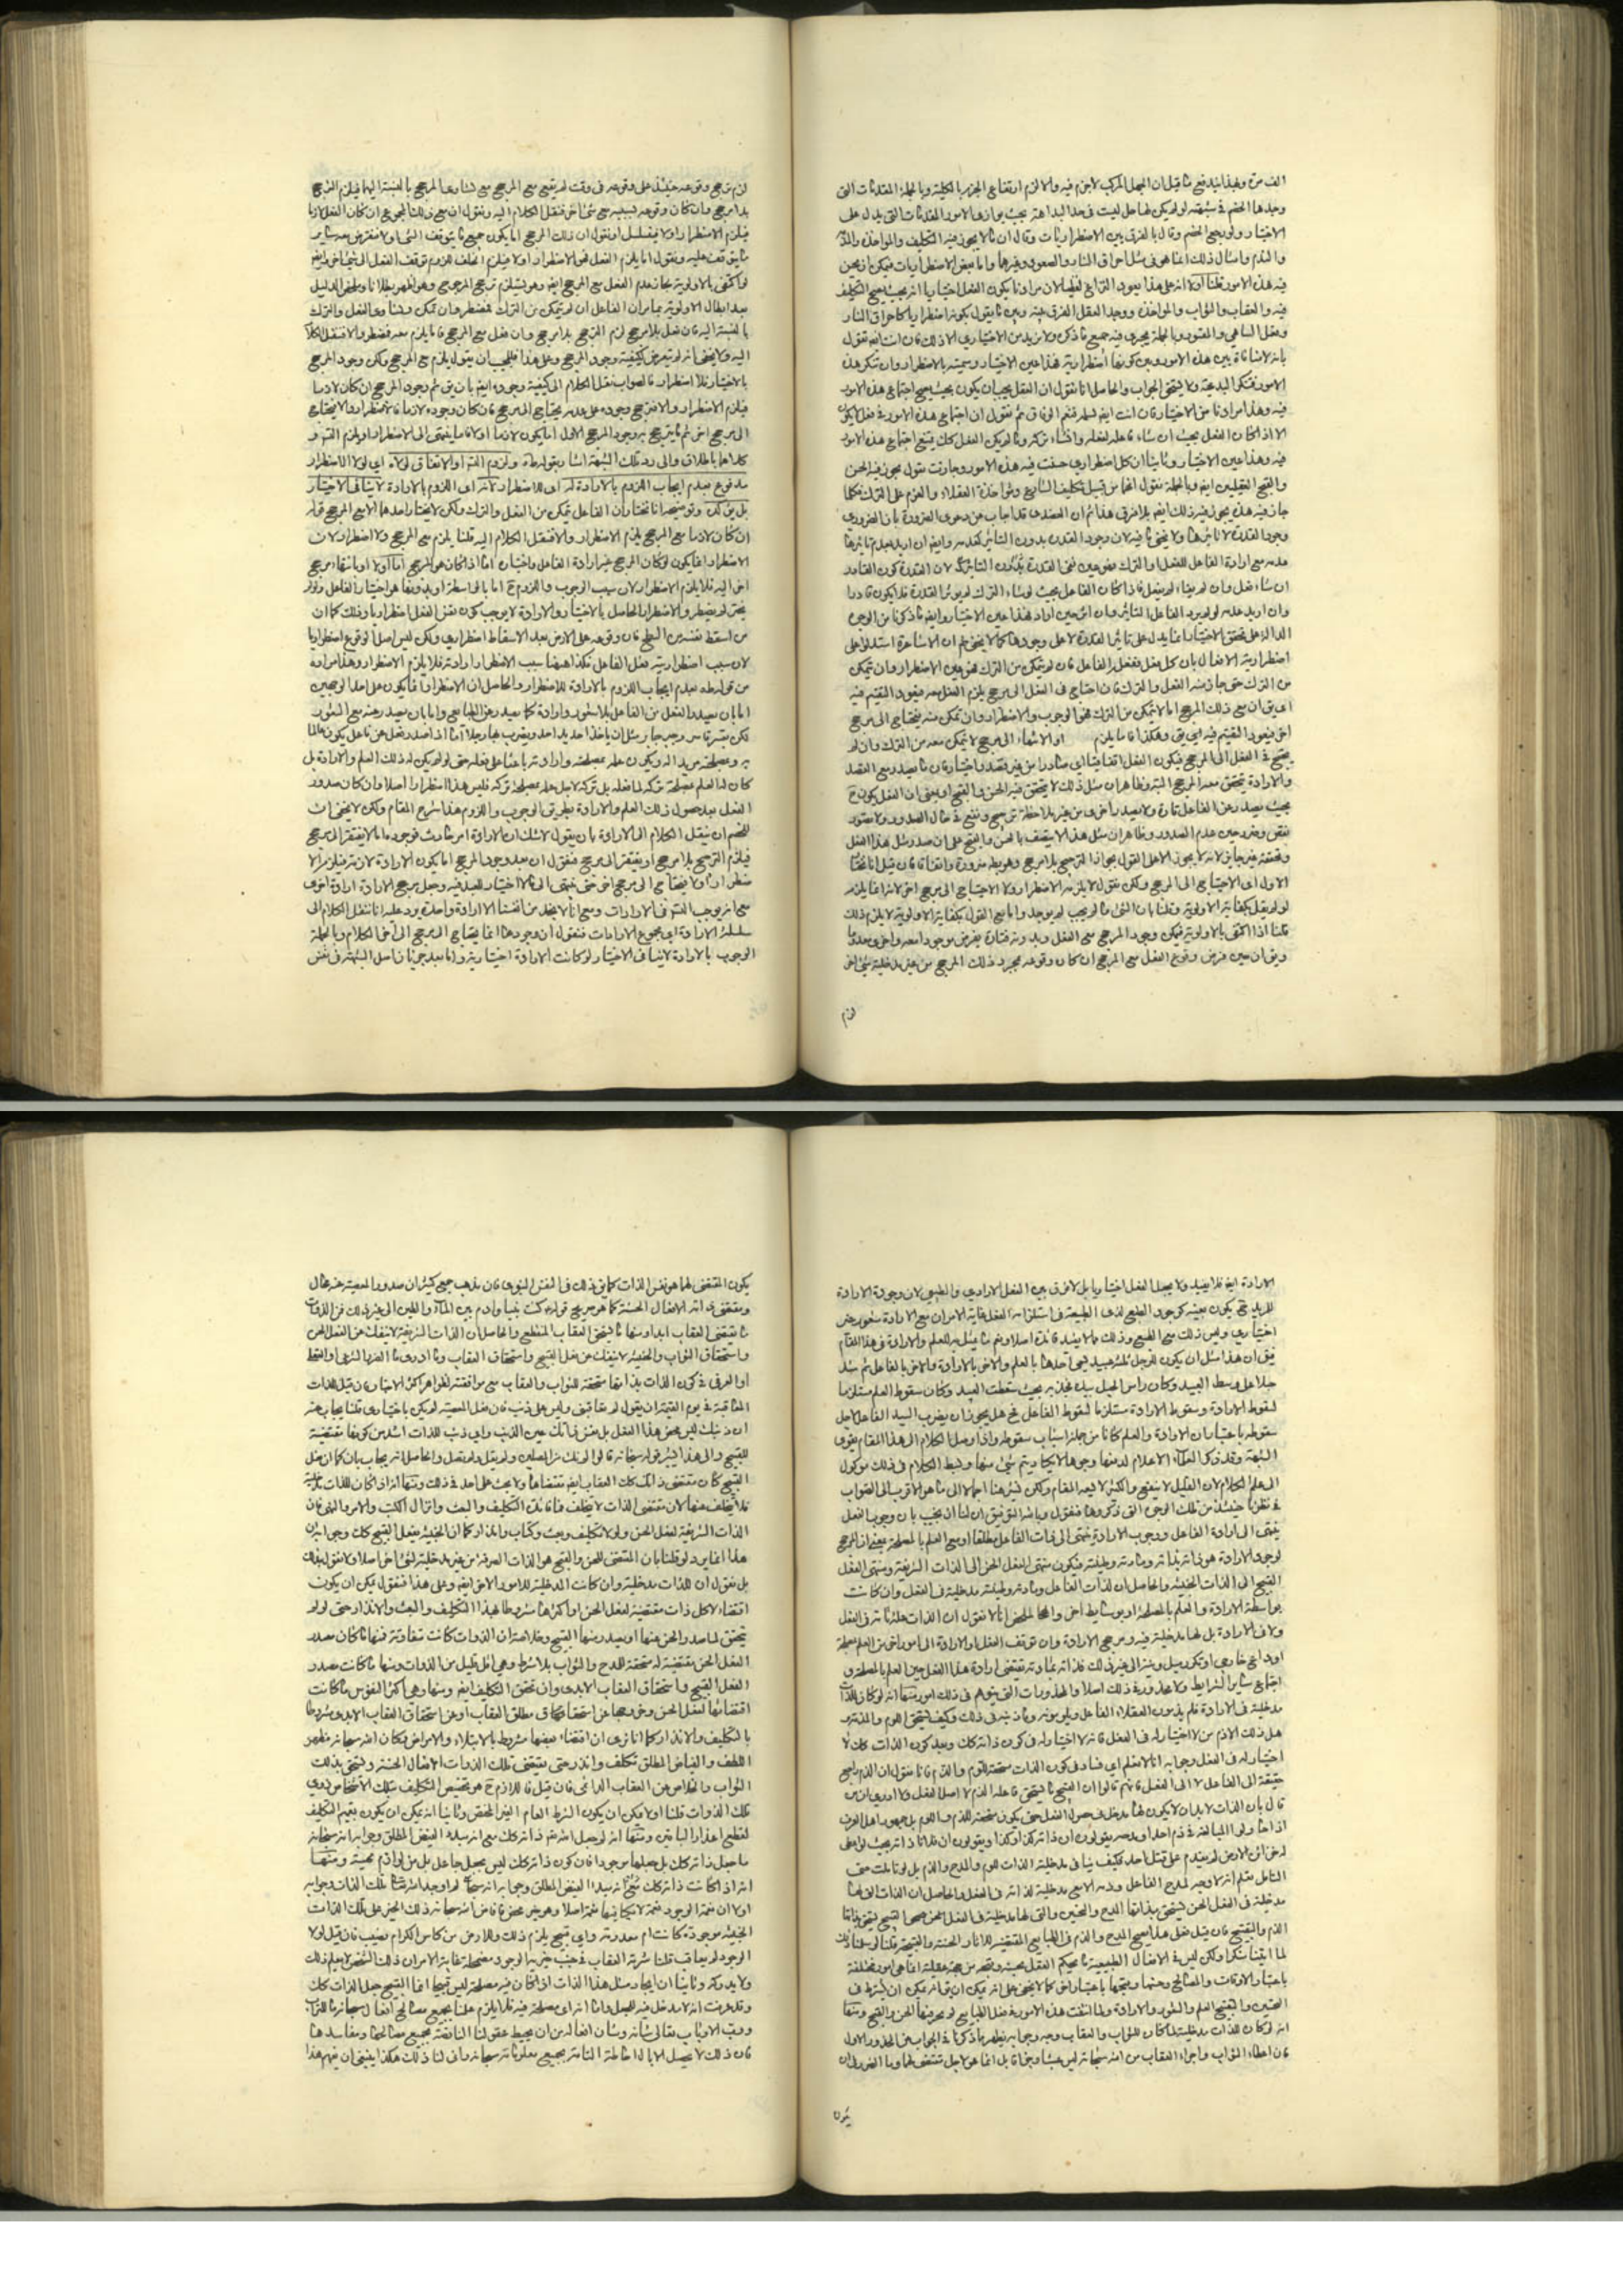 الف مرة وبهذا يندفع ما قيل ان الجهل المركب لا جزم فيه والا لزم ارتفاع الجزم بالكلية وبالجملة المقدمات التي
وجدها الخصم في شبهته لو لم يكن لها حل ليست في حد البداهة بحيث يوازيها الامور المقدمات التي يدل على
الاختيار ولو رجع الخصم وقال بالفرق بين الاضطراريات وقال ان ما لا يجوز فيه التكليف والمواخذة والمدح
والذم وامثال ذلك انما هو في مثل احراق النار والصعود وغيرها واما بعض الاضطراريات فيمكن ان يحسن
فيه هذه الامور قلنا اولا انه على هذا يعود النزاع لفظيا لان مرادنا بكون الفعل اختياريا انه بحيث يصح التكليف
فيه والعقاب والثواب والمواخذة ووجد العقل الفرق بينه وبين ما يقول بكونه اضطراريا كاحراق النار
وفعل الساهي والمقسور وبالجملة يجري فيه جميع ما ذكر ولا نريد من الاختياري الا ذلك فان انت ايضا تقول
بانه لا منافاة بين هذه الامور وبين كونها اضطرارية فهذا عين الاختيار وسميته بالاضطرار وان تنكر هذه
الامور فتنكر البديهة ولا يستحق الجواب والحاصل انا نقول ان الفعل يجب ان يكون بحيث يصح اجتماع هذه الامور
فيه وهذا مرادنا من الاختيار فان انت ايضا تسلمه فنعم الوفاق ثم نقول ان اجتماع هذه الامور في فعل لا يكون
الا اذا كان الفعل بحيث ان شاء فاعله لفعله وان شاء تركه وما لم يكن الفعل كك يقبح اجتماع هذه الامور
فيه وهذا عين الاختيار وثانيا ان كل اضطراري حسنت فيه هذه الامور وجازت نقول يجوز فيه الحسن
والقبح العقليين ايضا وبالجملة نقول انهما من قبيل تكليف الشارع ومواخذة العقلاء والعزم على الترك فكلما
جاز فيه هذه يجوز فيه ذلك ايضا بلا فرق هذا ثم ان العضدي قد اجاب عن دعوى الضرورة بان الضروري
وجود القدرة لا تاثيرها ولا يخفى ما فيه لان وجود القدرة بدون التاثير كعدمه وايضا ان اريد بعدم تاثيرها
عدمه مع ارادة الفاعل للفعل او الترك فهو عين نفي القدرة لان القدرة كون القادر
ان شاء فعل وان لم يشاء لم يفعل فاذا كان الفاعل بحيث لو شاء الترك لم يوثر القدرة فلا يكون قادرا
وان اريد عدمه لو لم يرد الفاعل التاثير وان اثر حين اراد فهذا عين الاختيار وايضا ما ذكرنا من الوجوه
الدالة على تحقق الاختيار انما يدل على تاثير القدرة لا على وجودها كما لا يخفى ثم ان الاشاعرة استدلوا على
اضطرارية الافعال بان كل فعل يفعله الفاعل فان لم يتمكن من الترك فهو عين الاضطرار وان تمكن
من الترك حتى جاز منه الفعل والترك فان احتاج في الفعل الى مرجح يلزم الفعل معه فيعود التقسيم فيه
اعني ان مع ذلك المرجح اما لا يتمكن من الترك فهو الوجوب والاضطرار وان تمكن منه فيحتاج الى مرجح
اخر فيعود التقسيم فيه ايضا وهكذا فاما يلزم او الانتهاء الى مرجح لا يتمكن معه من الترك وان لم
يحتج في الفعل الى المرجح فيكون الفعل اتفاقيا اي صادرا من غير قصد واختيار فان ما يصدر مع القصد
والارادة تحقق معه المرجح البتة وظاهر ان مثل ذلك لا يتحقق فيه الحسن والقبح او يعني ان الفعل يكون ح
بحيث يصدر عن الفاعل تارة ولا يصدر اخرى من غير ملاحظة ترجيح
وتحققه غير جايز لانه لا يجوز الا على القول بجواز الترجيح بلا مرجح وهو بط ضرورة واتفاقا فان قيل انا نختار
الاول اي الاحتياج الى المرجح ولكن نقول لا يلزمه الاضطرار ولا الاحتياج الى مرجح اخر لانه انما يلزمه
لو لم يقل بكفاية الاولوية وقلنا بان الشئ ما لم يجب لم يوجد واما مع القول بكفاية الاولوية لا يلزم ذلك
قلنا اذا اكتفى بالاولوية فيمكن وجود المرجح مع الفعل وبدونه فتارة يفرض موجودا معه واخرى معدوما
وبق ان حين فرض وقوع الفعل مع المرجح ان كان وقوعه بمجرد ذلك المرجح من غير مدخلية شئ اخر
لزم
لزم ترجح وقوعه حينئذ على وقوعه في وقت لم يقع مع المرجح مع تساوي المرجح بالنسبة اليهما فيلزم الترجيح
بلا مرجح وان كان وقوعه بسببه مع شئ اخر فننقل الكلام اليه ونقول ان مع ذلك المجموع ان كان الفعل لازما
فيلزم الاضطرار اولا فيتسلسل او نقول ان ذلك المرجح اما يكون جميع ما يتوقف الشئ او لا فنفرض معه سائر
ما يتوقف عليه ونقول اما يلزم الفعل فهو الاضطرار او لا فيلزم الخلف للزوم توقف الفعل الى شئ اخر وايضا
لو اكتفى بالاولوية لجاز عدم الفعل مع المرجح ايضا وهو يستلزم ترجيح المرجوح وهو اظهر بطلانا وملخص الدليل
بعد ابطال الاولوية بما مر ان الفاعل ان لم يتمكن من الترك فمضطر وان تمكن وتساوى الفعل والترك
بالنسبة اليه فان فعل بلا مرجح لزم الترجيح بلا مرجح وان فعل مع المرجح فاما يلزم معه فمضطر والا ننقل الكلام
اليه ولا يخفى انه لو تعرض لكيفية وجود المرجح وعلى هذا فللمجيب ان يقول يلزم مع المرجح ولكن وجود المرجح
بالاختيار فلا اضطرار فالصواب نقل الكلام الى كيفية وجوده ايضا بان يق ثم وجود المرجح ان كان لازما
فيلزم الاضطرار والا فترجح وجوده على عدمه يحتاج الى مرجح فان كان وجوده لازما فالاضطرار والا فيحتاج
الى مرجح اخر ثم ما يترجح به وجود المرجح الاول اما يكون لازما او لا فاما ينتهى الى الاضطرار او يلزم التس و
كلاهما باطلان والى رد تلك الشبهة اشار بقوله طه ولزوم التس او الاتفاق لولاه اي لولا الاضطرار
مدفوع بعدم ايجاب اللزوم بالارادة له اي للاضطرار لانه اي اللزوم بالارادة لا ينافي الاختيار
بل يؤكده وتوضيحه انا نختار ان الفاعل يتمكن من الفعل والترك ولكن لا يختار احدهما الا مع المرجح قوله
ان كان لازما مع المرجح يلزم الاضطرار والا فننقل الكلام اليه قلنا يلزم مع المرجح ولا اضطرار لان
الاضطرار انما يكون لو كان المرجح غير ارادة الفاعل واختياره اما اذا كان هو المرجح اما اولا او بانتهاء مرجح
اخر اليه فلا يلزم الاضطرار لان سبب الوجوب واللزوم ح اما بالواسطة او بدونها هو اختيار الفاعل ولو لم
يختر لم يضطر والاضطرار الحاصل بالاختيار والارادة لا يوجب كون نفس الفعل اضطراريا وذلك كما ان
من اسقط نفسه من السطح فان وقوعه على الارض بعد الاسقاط اضطراري ولكن ليس اصل الوقوع اضطراريا
لان سبب اضطراريته فعل الفاعل فكذا هيهنا سبب الاضطرار ارادته فلا يلزم الاضطرار وهذا مراده
من قوله طه بعدم ايجاب اللزوم بالارادة للاضطرار والحاصل ان الاضطرار انما يكون على احد الوجهين
اما بان يصدر الفعل من الفاعل بلا شعور وارادة كما يصدر عن الطبائع واما بان يصدر عنه مع الشعور
لكن بقسر قاسر وجبر جابر مثل ان ياخذ احد يد احد ويضرب بها رجلا اما اذا صدر فعل عن فاعل يكون عالما
به وبمصلحته مريدا له ويكون علمه بمصلحته وارادته باعثا على فعله حتى لو لم يكن له ذلك العلم والارادة بل
كان له العلم بمصلحة تركه لما فعله بل تركه لاجل علمه بمصلحة تركه فليس هذا اضطرارا اصلا وان كان صدور
الفعل بعد حصول ذلك العلم والارادة بطريق الوجوب واللزوم هذا شرح المقام ولكن لا يخفى ان
للخصم ان ينقل الكلام الى الارادة بان يقول لا شك ان الارادة امر حادث فوجوده اما لا يفتقر الى مرجح
فيلزم الترجيح بلا مرجح او يفتقر الى مرجح فنقول ان بعد وجود المرجح اما يكون الارادة لازمة فيلزم الا
ضطرار او لا فيحتاج الى مرجح اخر حتى ينتهى الى ما لا اختيار للعبد فيه وجعل مرجح الارادة ارادة اخرى
مع انه يوجب التس في الارادات ومع انا لا نجد من انفسنا الا ارادة واحدة يرد عليه انا ننقل الكلام الى
سلسلة الارادة اي مجموع الارادات فنقول ان وجودها انما يحتاج الى مرجح الى اخر الكلام وبالجملة
الوجوب بالارادة لا ينافي الاختيار لو كانت الارادة اختيارية واما بعد جريان اصل الشبهة في نفس
الارادة ايضا فلا يفيد ولا يجعل الفعل اختياريا بل لا فرق بين الفعل الارادي والطبيعي لان وجود الارادة
للمريد ح يكون بعينه كوجود الطبع لذي الطبيعة في استلزامه الفعل غاية الامر ان مع الارادة شعور غير
اختياري وليس ذلك مع الطبع وذلك مما لا يفيد فائدة اصلا ونعم ما يمثل به للعلم والارادة في هذا المقام
يق ان هذا مثل ان يكون لرجل ثلثة عبيد سمى احدها بالعلم والاخر بالارادة والاخر بالفاعل ثم شد
حبلا على وسط العبيد وكان راس الحبل بيده فجذبه بحيث سقطت العبيد وكان سقوط العلم مستلزما
لسقوط الارادة وسقوط الارادة مستلزما لسقوط الفاعل فح هل يجوز ان يضرب السيد الفاعل لاجل
سقوطه باعتبار ان الارادة والعلم كانا من جملة اسباب سقوطه واذا وصل الكلام الى هذا المقام يقوى
الشبهة وقد ذكر العلماء الاعلام لدفعها وجوها لا يكاد يتم شئ منها وبسط الكلام في ذلك موكول
الى علم الكلام لان القليل لا ينفع والكثير لا يسعه المقام ولكن نشير هنا اجمالا الى ما هو الاقرب الى الصواب
في نظرنا حينئذ من تلك الوجوه التي ذكروها فنقول وبالله التوفيق ان لنا ان نجيب بان وجوب الفعل
ينتهى الى ارادة الفاعل ووجوب الارادة ينتهى الى ذات الفاعل مطلقا او مع العلم بالمصلحة بمعنى ان المرجح
لوجود الارادة هو ذاته بذاته ومادته وطينته فيكون منتهى الفعل الحسن الى الذات الشريفة ومنتهى الفعل
القبيح الى الذات الخبيثة والحاصل ان لذات الفاعل ومادته وطينته مدخلية في الفعل وان كانت
بواسطة الارادة والعلم بالمصلحة او بوسايط اخر والملخص انا لا نقول ان الذات علة تامة في الفعل
ولا في الارادة بل لها مدخلية فيه ومرجح الارادة وان توقف الفعل او الارادة الى امور اخر من العلم بمصلحة
او داع خارجي او تكرر ميل وغير الى غير ذلك فذاته بمادته يقتضى ارادة هذا الفعل حين العلم بالمصلحة و
اجتماع سائر الشرايط ولا محذور في ذلك اصلا والمحذورات التي يتوهم في ذلك امور منها انه لو كان للذات
مدخلية في الارادة فلم يذمون العقلاء الفاعل ويلومونه وما ذنبه في ذلك وكيف يستحق اللوم والمذمة
هل ذلك الا ذم من لا اختيار له في الفعل فانه لا اختيار له في كون ذاته كك وبعد كون الذات كك لا
اختيار له في الفعل وجوابه انا لا نعلم اي فساد في كون الذات مستحقة للوم والذم فانا نقول ان الذم راجع
حقيقة الى الفاعل لا الى الفعل فانهم قالوا ان القبيح ما يستحق فاعله الذم لا اصل الفعل ولا ادري ان من
قال بان الذات لا بد ان لا يكون لها مدخل في حصول الفعل حتى يكون مستحقة للذم واللوم بل جمهور اهل العرف
اذا حاولوا المبالغة في ذم احد او مدحه يقولون ان ذاته كذا وكذا ويقولون ان فلانا ذاته بحيث لو اعطى
له خزائن الارض لم يقدم على قتل احد فكيف ينافي مدخلية الذات للوم والمدح والذم بل لو تاملت حق
التامل تعلم انه لا وجه لمدح الفاعل وذمه الا مع مدخلية لذاته في الفعل والحاصل ان الذات التي لها
مدخلية في الفعل الحسن يستحق بذاتها المدح والتحسين والتي لها مدخلية في الفعل القبيح يستحق بذاتها
الذم والتقبيح فان قيل فعلى هذا يصح المدح والذم في الطبائع المقتضية للاثار الحسنة والقبيحة قلنا لو سلمنا ذلك
لما اتينا منكرا ولكن ليس في الافعال الطبيعية ما يحكم العقل بحسنه وقبحه من جهة عقلية انما هي امور مختلفة
باعتبار الاوقات والمصالح وحسنها وقبحها باعتبار اخر كما لا يخفى على انه يمكن ان يق انه يمكن ان يشترط في
التحسين والتقبيح العلم والشعور والارادة ولما انتفت هذه الامور في فعل الطبائع لم يجر فيها الحسن والقبح ومنها
انه لو كان للذات مدخلية لما كان للثواب والعقاب وجه وجوابه يظهر مما ذكرنا في الجواب عن المحذور الاول
فان اعطاء الثواب واجراء العقاب من الله سبحانه ليس عبثا وجزافا بل انما هو لاجل مقتضى لهما وما الضرر في ان
يكون
يكون المقتضى لهما هو نفس الذات كما يق ذلك في النص النبوى فان مذهب جمع كثير ان صدور المعصية عنه محال
ومقتضى ذاته الافعال الحسنة كما هو صريح قوله كنت نبيا وادم بين الماء والطين الى غير ذلك فمن الذوات
ما يقتضى العقاب ابدا ومنها ما يستحق العقاب المنقطع والحاصل ان الذات الشريفة لا ينفك عن الفعل الحسن
واستحقاق الثواب والخبيثة لا ينفك عن فعل القبيح واستحقاق العقاب وما ادري ما الضرر الشرعي او العقلي
او العرفي في كون الذات بذاتها مستحقة للثواب والعقاب مع موافقته لظواهر اكثر الاخبار فان قيل للذات
المعاقبة في يوم القيمة ان يقول لم يعاقبني وليس على ذنب فان فعل المعصية لم يكن باختياري قلنا يجاب عنه
ان ذنبك ليس محض هذا الفعل بل نفس ذاتك عين الذنب واي ذنب للذات اشد من كونها مقتضية
للقبيح والى هذا يشير قوله سبحانه قالوا لم نك من المصلين ولم يقل ولم نفعل والحاصل انه يجاب بان كما ان فعل
القبيح كان مقتضى ذاتك كك العقاب ايضا مقتضاها ولا بحث على احد في ذلك ومنها انه اذا كان للذات مدخلية
فلا يتخلف عنها لان مقتضى الذات لا يتخلف فما فائدة التكليف والبعث وانزال الكتب والامر والنهي فان
الذات الشريفة تفعل الحسن ولو لا تكليف وبعث وكتاب وانذار كما ان الخبيثة يفعل القبيح كك وجوابه ان
هذا انما يرد لو قلنا بان المقتضى للحسن والقبح هو الذات الصرفة من غير مدخلية لشئ اخر اصلا ولا نقول بذلك
بل نقول ان للذات مدخلية وان كانت المدخلية للامور الاخر ايضا وعلى هذا فنقول يمكن ان يكون
اقتضاء كل ذات مقتضية لفعل الحسن او اكثرها مشروطا بهذا التكليف والبعث والانذار حتى لو لم
يتحقق لما صدر الحسن عنها او يصدر منها القبيح وخلاصته ان الذوات كانت متفاوتة فمنها ما كان مصدر
الفعل الحسن مقتضية له مستحقة للمدح والثواب بلا شرط وهي اقل قليل من الذوات ومنها ما كانت مصدر
الفعل القبيح واستحقاق العقاب الابدي وان تحقق التكليف ايضا ومنها وهي اكثر النفوس ما كانت
اقتضائها لفعل الحسن وخروجها عن استحقاق مطلق العقاب او عن استحقاق العقاب الابدي مشروطا
بالتكليف والانذار كما انا نرى ان اقتضاء بعضها مشروط بالابتلاء والامراض فكان الله سبحانه مظهر
اللطف والفياض المطلق فكلف وانذر حتى يقتضى تلك الذوات الافعال الحسنة ويستحق بذلك
الثواب والخلاص من العقاب الدائمي فان قيل فاللازم ح هو تخصيص التكليف بتلك الاشخاص ذوي
تلك الذوات قلنا اولا يمكن ان يكون الشرط العام الغير المختص وثانيا انه يمكن ان يكون تعميم التكليف
لقطع اعذار الباقين ومنها انه لم جعل الله تعه ذاته كك مع انه مبدء الفيض المطلق وجوابه انه سبحانه
ما جعل ذاته كك بل جعلها موجودا فان كون ذاته كك ليس بجعل جاعل بل من لوازم مهيته ومنها
انه اذا كانت ذاته كك فمع انه مبدء الفيض المطلق وجوابه انه سبحانه لم اوجد الله تعه تلك الذات وجوابه
اولا ان نعمة الوجود نعمة لا يكافيها نعمة اصلا وهو خير محض فافاض الله سبحانه ذلك الخير على تلك الذات
الخبيثة موجودة كانت ام معدومة واي قبح يلزم ذلك وللارض من كاس الكرام نصيب فان قيل لو لا
الوجود لم يعاقب قلنا شرية العقاب في جنب خيرية الوجود مضمحلة غاية الامر ان ذلك الشخص لا يعلم ذلك
ولا يدركه وثانيا ان ايجاد مثل هذا الذات اذا كان فيه مصلحة ليس قبيحا انما القبيح جعل الذات كك
وقد عرفت انه لا مدخل فيه للجعل واما انه اي مصلحة فيه فلا يلزم علمنا بجميع مصالح افعال سبحانه ما للتراب
ورب الارباب تعالى شانه وشان افعاله من ان يحيط عقولنا الناقصة بجميع مصالحها ومفاسدها
فان ذلك لا يحصل الا بالاحاطة التامة بجميع معلوماته سبحانه وانى لنا ذلك هكذا ينبغي ان يفهم هذا